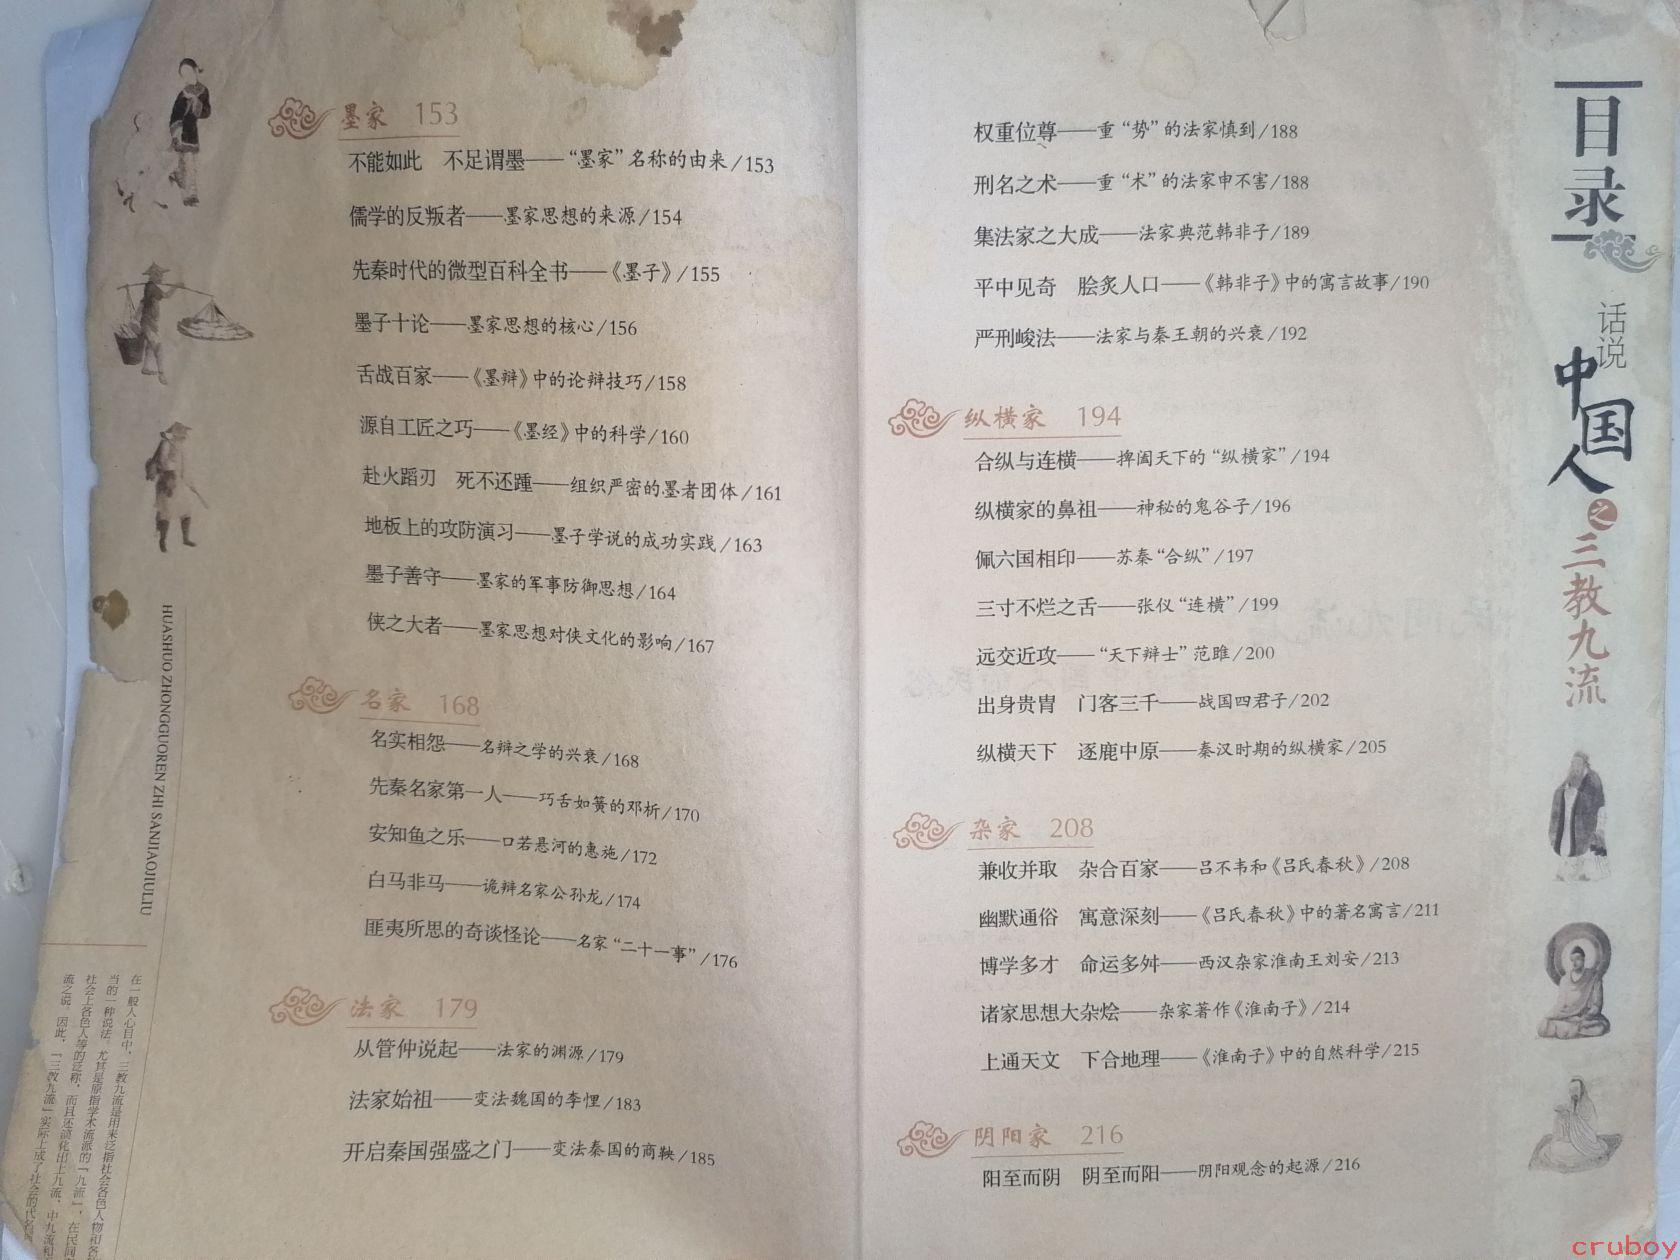 墨家 153
不能如此 不足谓墨——“墨家”名称的由来/153
儒学的反叛者——墨家思想的来源/154
先秦时代的微型百科全书——《墨子》/155
墨子十论——墨家思想的核心/156
舌战百家——《墨辩》中的论辩技巧/158
源自工匠之巧——《墨经》中的科学/160
赴火蹈刃 死不还踵——组织严密的墨者团体/161
地板上的攻防演习——墨子学说的成功实践/163
墨子善守——墨家的军事防御思想/164
侠之大者——墨家思想对侠文化的影响/167
名家 168
名实相怨——名辩之学的兴衰/168
先秦名家第一人——巧舌如簧的邓析/170
安知鱼之乐——口若悬河的惠施/172
白马非马——诡辩名家公孙龙/174
匪夷所思的奇谈怪论——名家“二十一事”/176
法家 179
从管仲说起——法家的渊源/179
法家始祖——变法魏国的李悝/183
开启秦国强盛之门——变法秦国的商鞅/185
HUASHUO ZHONGGUOREN ZHI SANJIAOJIULIU
在一般人心目中，三教九流是用来泛指社会各色人物和各
当的一种说法。尤其是原指学术流派的「九流」，在民间
社会上各色人等的泛称，而且还演化出上九流、中九流和
流之说。因此，「三教九流」实际上成了社会的代名
权重位尊——重“势”的法家慎到/188
刑名之术——重“术”的法家申不害/188
集法家之大成——法家典范韩非子/189
平中见奇 脍炙人口——《韩非子》中的寓言故事/190
严刑峻法——法家与秦王朝的兴衰/192
纵横家 194
合纵与连横——捭阖天下的“纵横家”/194
纵横家的鼻祖——神秘的鬼谷子/196
佩六国相印——苏秦“合纵”/197
三寸不烂之舌——张仪“连横”/199
远交近攻——“天下辩士”范雎/200
出身贵胄 门客三千——战国四君子/202
纵横天下 逐鹿中原——秦汉时期的纵横家/205
杂家 208
兼收并取 杂合百家——吕不韦和《吕氏春秋》/208
幽默通俗 寓意深刻——《吕氏春秋》中的著名寓言/211
博学多才 命运多舛——西汉杂家淮南王刘安/213
诸家思想大杂烩——杂家著作《淮南子》/214
上通天文 下合地理——《淮南子》中的自然科学/215
阴阳家 216
阳至而阴 阴至而阳——阴阳观念的起源/216
目录
话说
中国人
之
三教九流
cruboy